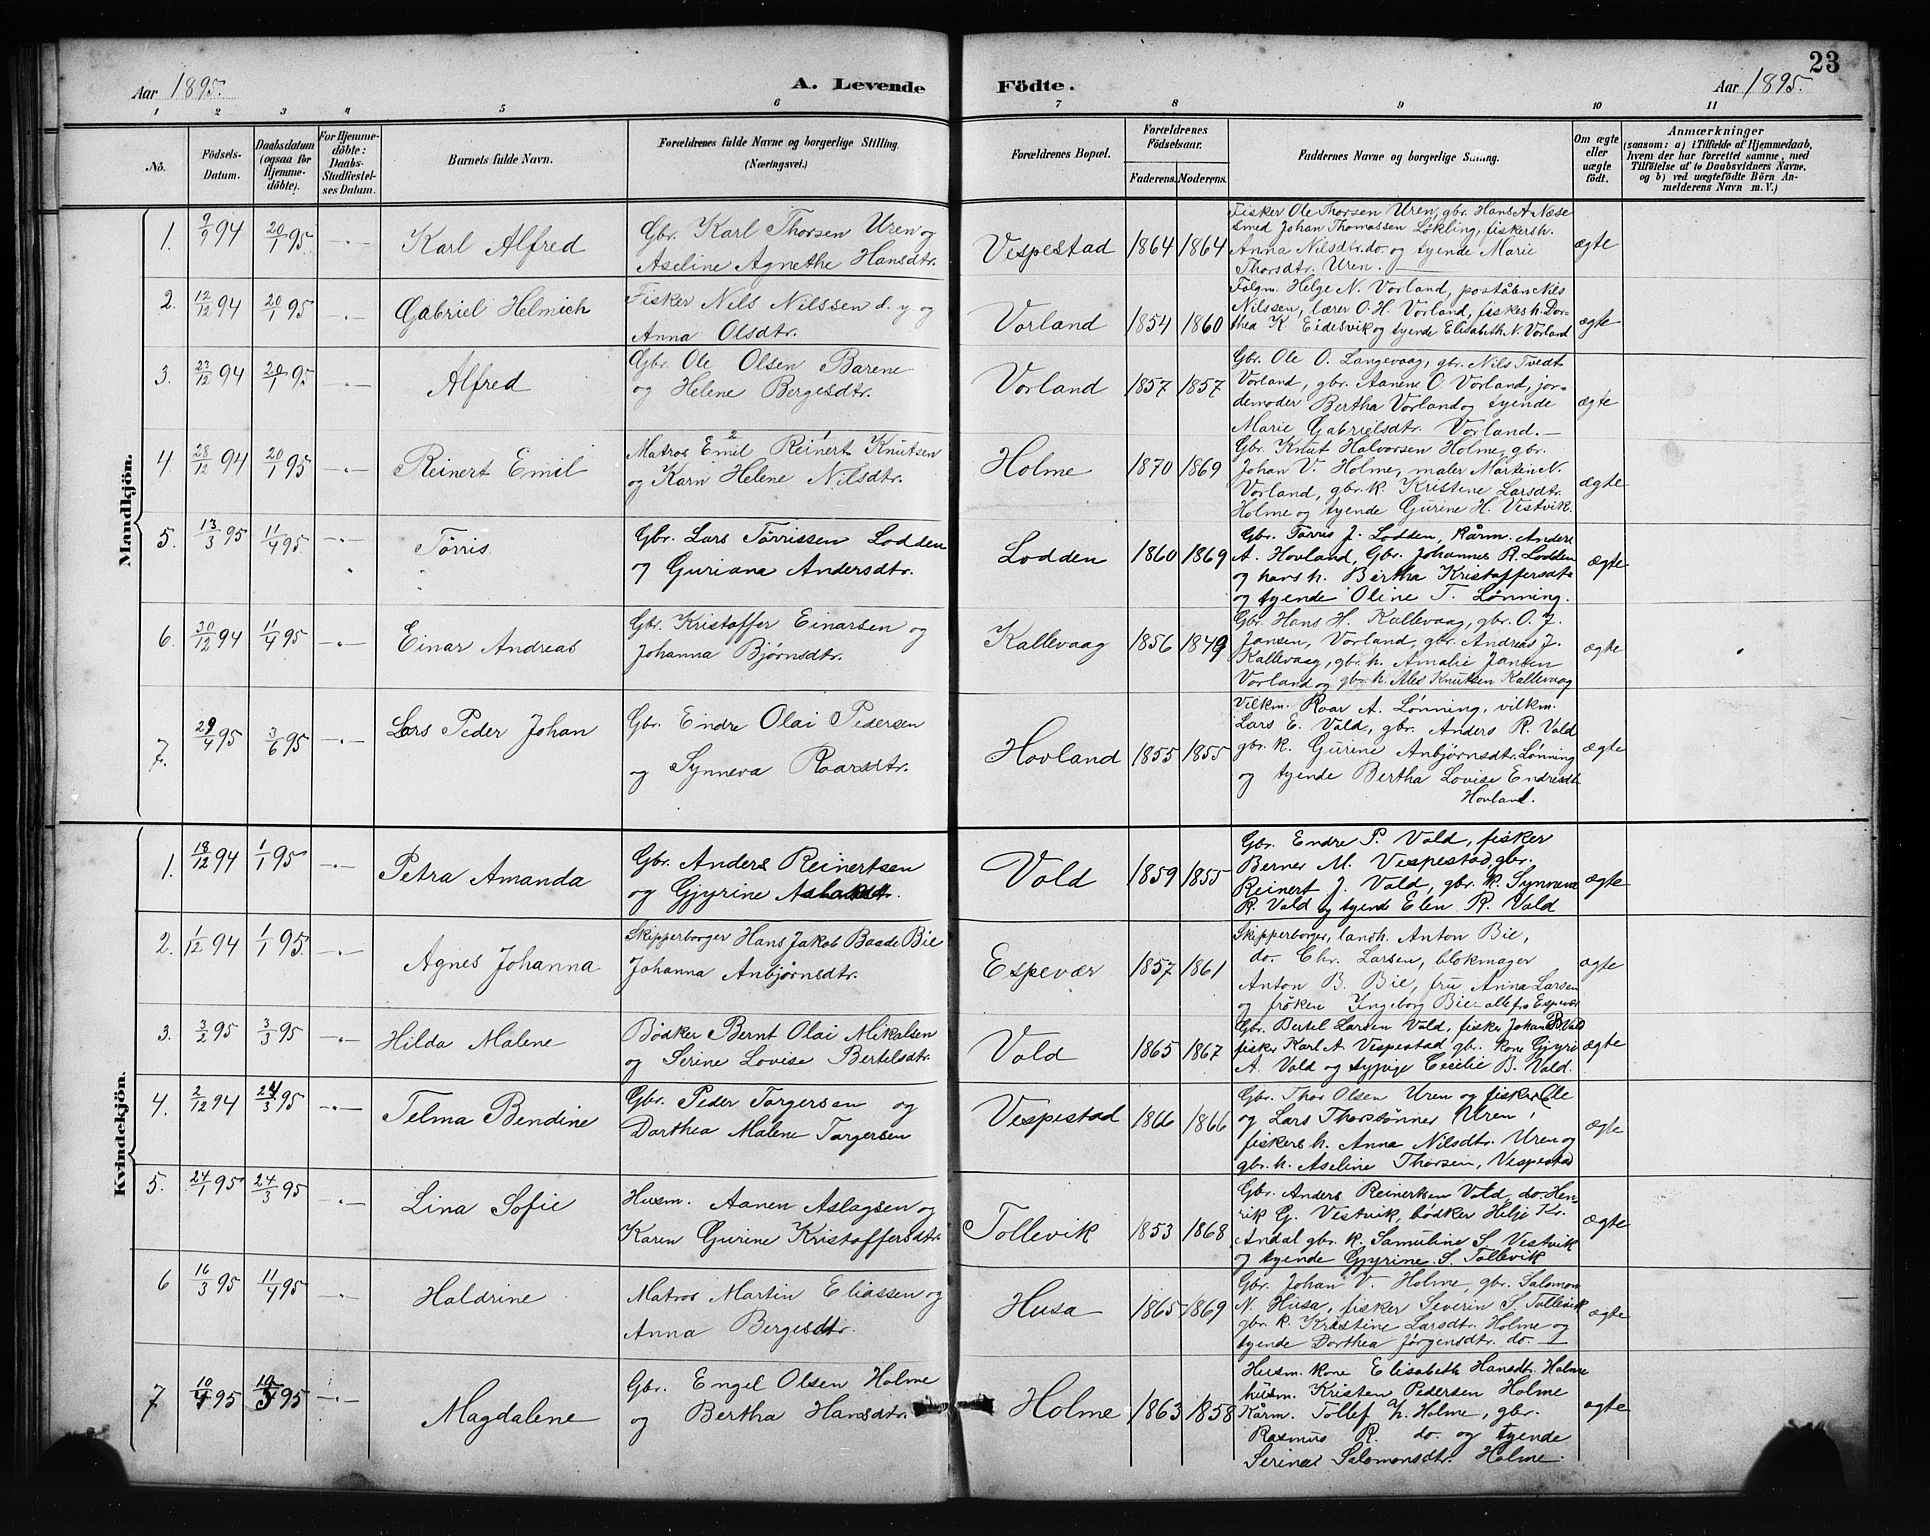 23
Aar 1895. A. Levende Födte. Aar 1895.
1 2 3 4 5 6 7 8 9 10 11
No. Födsels-Datum. Daabsdatum (ogsaa for Hjemme-döbte). For Hjemme-döbte: Daabs-Stadfæstel-ses Datum. Barnets fulde Navn. Forældrenes fulde Navne og borgerlige Stilling. (Næringsvei.) Forældrenes Bopæl. Forældrenes Födselsaar. Faderens. Moderens. Faddernes Navne og borgerlige Stilling. Om ægte eller uægte födt. Anmærkninger (saasom: a) i Tilfælde af Hjemmedaab, hvem der har forrettet samme, med Tilföielse af to Daabsvidners Navne, og b) ved uægtefödte Börn An-melderens Navn m. V.)
Mandkjön.
1. 9/9 94 20/1 95 -"- Karl Alfred Gbr. Karl Thorsen Uren og
Aseline Agnethe Hansdtr. Vespestad 1864 1864 ægte
Fisker Ole Thorsen Uren, gbr. Hans A Næse
smed Johan Thomassen Løkling, fiskersh.
Anna Nilsdtr. do. og tyende Marie
Thorsdtr. Uren.
2. 12/12 94 20/1 95 -"- Gabriel Helmich Fisker Nils Nilssen d. y. og
Anna Olsdtr. Vorland 1854 1860 ægte
Følgm. Helge N. Vorland, poståbn Nils
Nilssen, lærer O. H. Vorland, fiskesh. Dor-
thea K. Eidesvik og tyende Elisabeth N. Vorland
3. 23/12 94 20/1 95 -"- Alfred Gbr. Ole Olsen Barene
og Helene Bergesdtr. Vorland 1857 1857 ægte
Gbr. Ole O. Langevaag, gbr. Nils Tvedt
Vorland, gbr. Aanene O. Vorland, jor-
demoder Bertha Vorland og tyende
Marie Gabrielsdtr. Vorland.
4. 28/12 94 20/1 95 -"- Reinert Emil Matros Emil Reinert Knutsen
og Karn Helene Nilsdtr. Holme 1870 1869 ægte
Gbr. Knut Halvorsen Holme, gbr.
Johan V. Holme, maler Mårten N.
Vorland, gbr. k. Kristine Larsdtr.
Holme og tyende Gurine H. Vestvik.
5. 13/3 95 11/4 95 -"- Tørris Gbr. Lars Tørrissen Lodden
og Guriana Andersdtr. Lodden 1860 1869 ægte
Gbr. Tørris J. Lodden, Kårm. Anders
A. Hovland, Gbr. Johannes R. Lodden
og hans h. Bertha Kristoffersdt.
og tyende Oline T. Lønning.
6. 30/12 94 11/4 95 -"- Einar Andreas Gbr. Kristoffer Einarsen og
Johanna Bjørnsdtr. Kallevaag 1856 1849 ægte
Gbr. Hans H. Kallevaag, gbr. O. J.
Jansen, Vorland, gbr. Andreas J.
Kallevaag, gbr. h. Amalie Jansen
Vorland og gbr. h. Ales Knutsen Kallevaag
7. 29/4 95 3/6 95 -"- Lars Peder Johan Gbr. Endre Olai Pedersen
og Synneva Roarsdtr. Hovland 1855 1855 ægte
Vilkm. Roar A. Lønning, vilkm.
Lars E. Vold, gbr. Anders R. Vold
gbr. k. Gurine Anbjørnsdtr. Lønning
og tyende Bertha Lovise Endresdt.
Hovland.
Kvindekjön.
1. 18/12 94 1/1 95 -"- Petra Amanda Gbr. Anders Reinertsen
og Gjyrine Vold 1859 1855 ægte
Gbr. Endre P. Vold, fisker
Berner M. Vespestad, gbr.
Reinert J. Vold, gbr. k. Synneva
R. Vold og tyende Elen R. Vold
2. 1/12 94 1/1 95 -"- Agnes Johanna Skipperborger Hans Jakob Baade Bie
Johanna Anbjørnsdtr. Espevær 1857 1861 ægte
Skipperborger, landh. Anton Bie,
do. Chr. Larsen, blokmager
Anton B. Bie, fru Anna Larsen
og frøken Ingeborg Bie - alle fra Espevær
3. 3/2 95 3/3 95 -"- Hilda Malene Bødker Bernt Olai Mikalsen
og Serine Lovise Bertelsdtr. Vold 1865 1867 ægte
Gbr. Bertel Larsen Vold, fisker Johan B. Vold
fisker Karl A. Vespestad gbr. kone Gjyri
A. Vold og tyvige Cecilie B. Vold.
4. 2/12 94 24/3 95 -"- Telma Bendine Gbr. Peder Torgersen og
Dorthea Malene Torgersen Vespestad 1866 1866 ægte
Gbr. Thor Olsen Uren og fisker Ole
og Lars Thorsønner Uren,
fiskersh. Anna Nilsdtr. Uren og
gbr. h. Aseline Thorsen, Vespestad
5. 24/1 95 24/3 95 -"- Lina Sofie Husm. Aanen Aslagsen og
Karen Gurine Kristoffersdtr. Tollevik 1853 1868 ægte
Gbr. Anders Reinertsen Vold, do. Hen-
rik G. Vestvik, bødker Helje Kr.
Andal gbr. k. Samuline S. Vestvik
og tyende Gjyrine S. Tollevik
6 16/3 95 11/4 95 -"- Haldrine Matros Martin Eliassen og
Anna Bergesdtr. Husa 1865 1869 ægte
Gbr. Johan V. Holme, gbr. Salomon
N. Husa, fisker Severin S. Tollevik
gbr. k. Kristine Larsdtr. Holme og
tyende Dorthea Jørgensdtr. do.
7 10/4 95 19/5 95 -"- Magdalene Gbr. Engel Olsen Holme
og Bertha Hansdtr. Holme 1863 1858 ægte
Husm. kone Elisabeth Hansdtr. Holme
husm. Kristen Pedersen Holme
Kårm. Tollef H. Holme, gbr.
Rasmus R. do. og tyende
Serina Salomonsdtr. Holme.